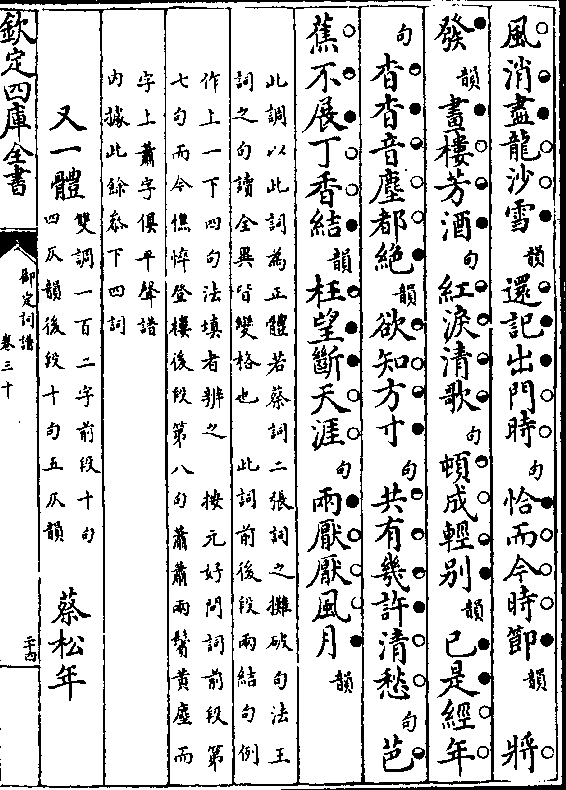 風消盡龍沙雪韻還記出門時句恰而今時節韻將
發韻畫樓芳酒句紅淚清歌句頓成輕别韻已是經年
句杳杳音塵都絶韻欲知方寸句共有幾許清愁句芭
蕉不展丁香結韻枉望斷天涯句兩厭厭風月韻
此調以此詞為正體若蔡詞二張詞之攤破句法王
詞之句讀全異皆變格也 此詞前後段兩結句例
作上一下四句法填者辨之 按元好問詞前段第
七句而今憔悴登樓後段第八句蕭蕭兩鬢黄塵而
字上蕭字俱平聲譜
內據此餘參下四詞
又一體
雙調一百二字前段十句
四仄韻後段十句五仄韻
蔡松年
欽定四庫全書
御定詞譜
卷三十
二十四